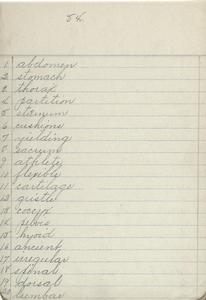 54
1 abdomen
2 stomach
3 thorax
4 partition
5 sternum
6 cushions
7 yielding
8 sacrum
9 athlete
10 flexible
11 cartilage
12 gristle
13 coccyx
14 pelvis
15 hyoid
16 ancient
17 irregular
18 spinal
19 dorsal
20 lumbar